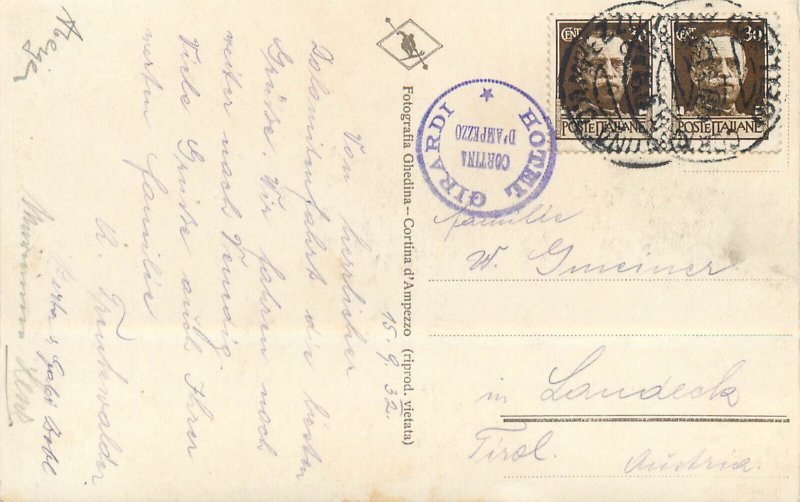 15.9.32.
Von herrlicher
Dolomitenfahrt die besten
Grüße. Wir fahren noch
weiter nach Venedig
Viele Grüße auch Ihrer
werten Familie
A. Trenkwalder
Fotografia Ghedina - Cortina d'Ampezzo (riprod. vietata)
HOTEL GIRARDI
CORTINA
D'AMPEZZO
CENT 30
POSTE ITALIANE
CENT 30
POSTE ITALIANE
Familie
W. Gmeiner
in Landeck
Tirol.
Austria.